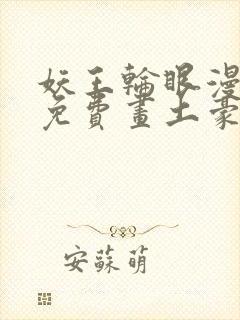 妖王輪眼漫
免費畫土豪
安蘇萌